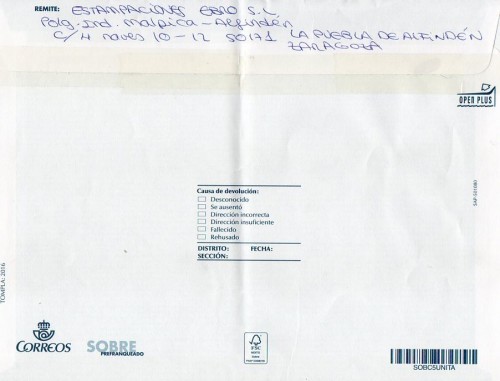 REMITE: ESTAMPACIONES EBRO S.L
Polg. Ind. Malpica - Alfindén
C/H naves 10-12 50171 LA PUEBLA DE ALFINDÉN
ZARAGOZA
OPEN PLUS
SAP-501080
Causa de devolución:
Desconocido
Se ausentó
Dirección incorrecta
Dirección insuficiente
Fallecido
Rehusado
DISTRITO: FECHA:
SECCIÓN:
TOMPLA: 2016
CORREOS
SOBRE
PREFRANQUEADO
FSC
MIXTO
SOBC5UNITA